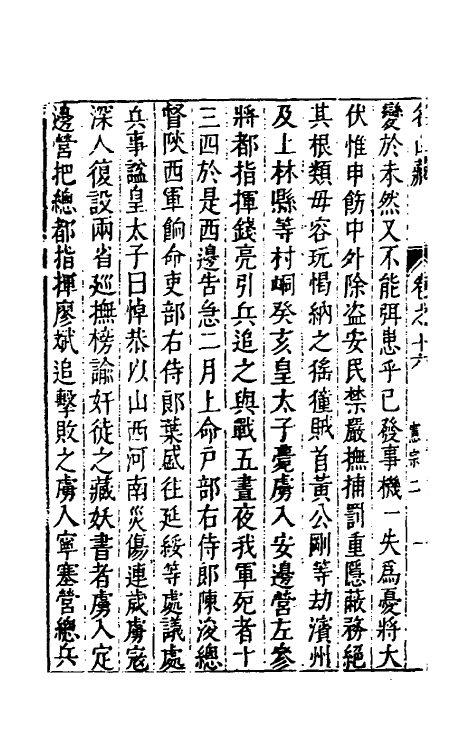 名山藏 卷之十六 憲宗二 一
變於未然又不能弭患乎已發事機一失爲憂將大
伏惟申飭中外除盜安民禁嚴撫捕罰重隱蔽務絕
其根類毋容玩愒納之徭獞賊首黃公剛等劫濱州
及上林縣等村峒癸亥皇太子薨虜入安邊營左參
將都指揮錢亮引兵追之與戰五晝夜我軍死者十
三四於是西邊告急二月上命戶部右侍郎陳浚總
督陜西軍餉命吏部右侍郎葉盛往延綏等處議處
兵事諡皇太子曰悼恭以山西河南災傷連歲虜寇
深入復設兩省廵撫榜諭奸徒之藏妖書者虜入定
邊營把總都指揮廖斌追擊敗之虜入寧塞營總兵